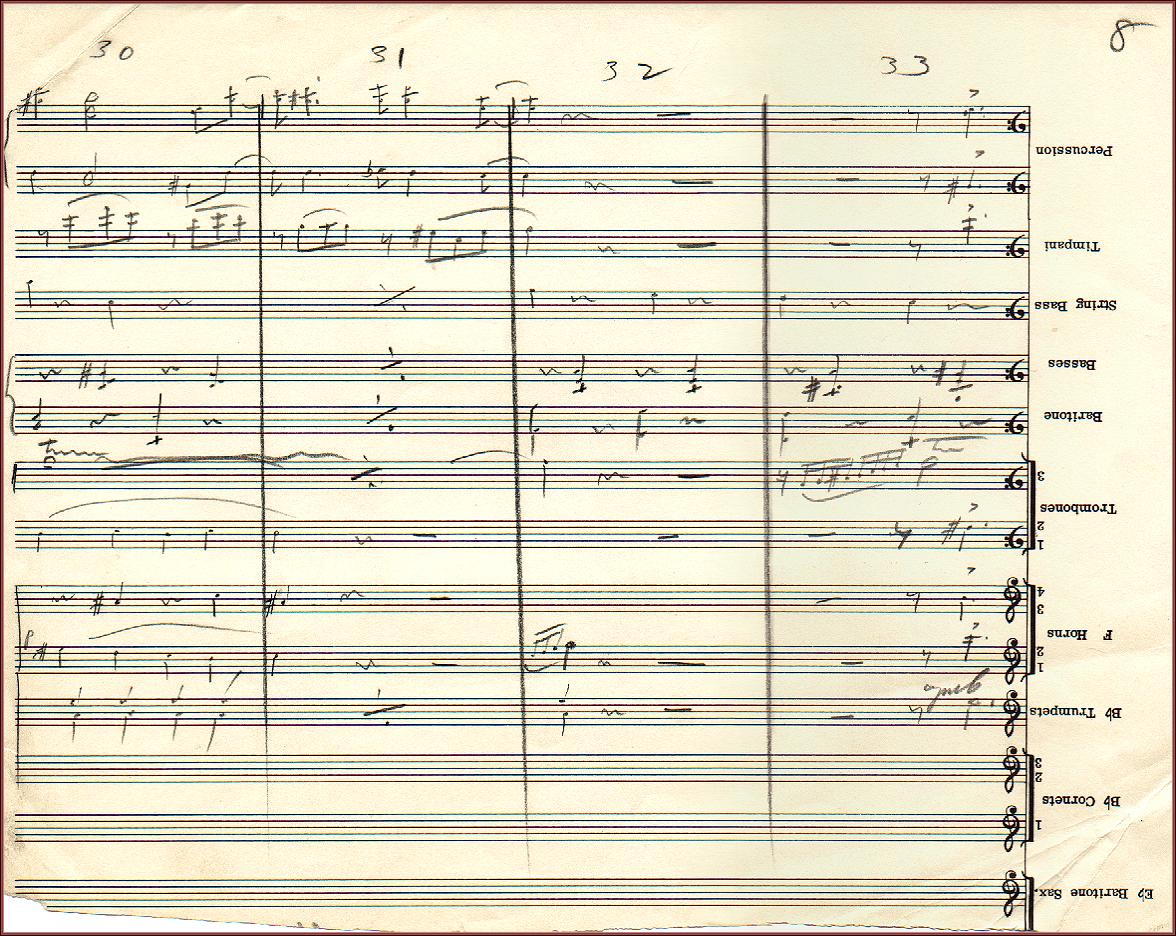 8
30 31 32 33
Percussion
Timpani
String Bass
Basses
Baritone
3
Trombones
2
1
4
3
F Horns
2
1
B♭ Trumpets
3
2
B♭ Cornets
1
E♭ Baritone Sax.